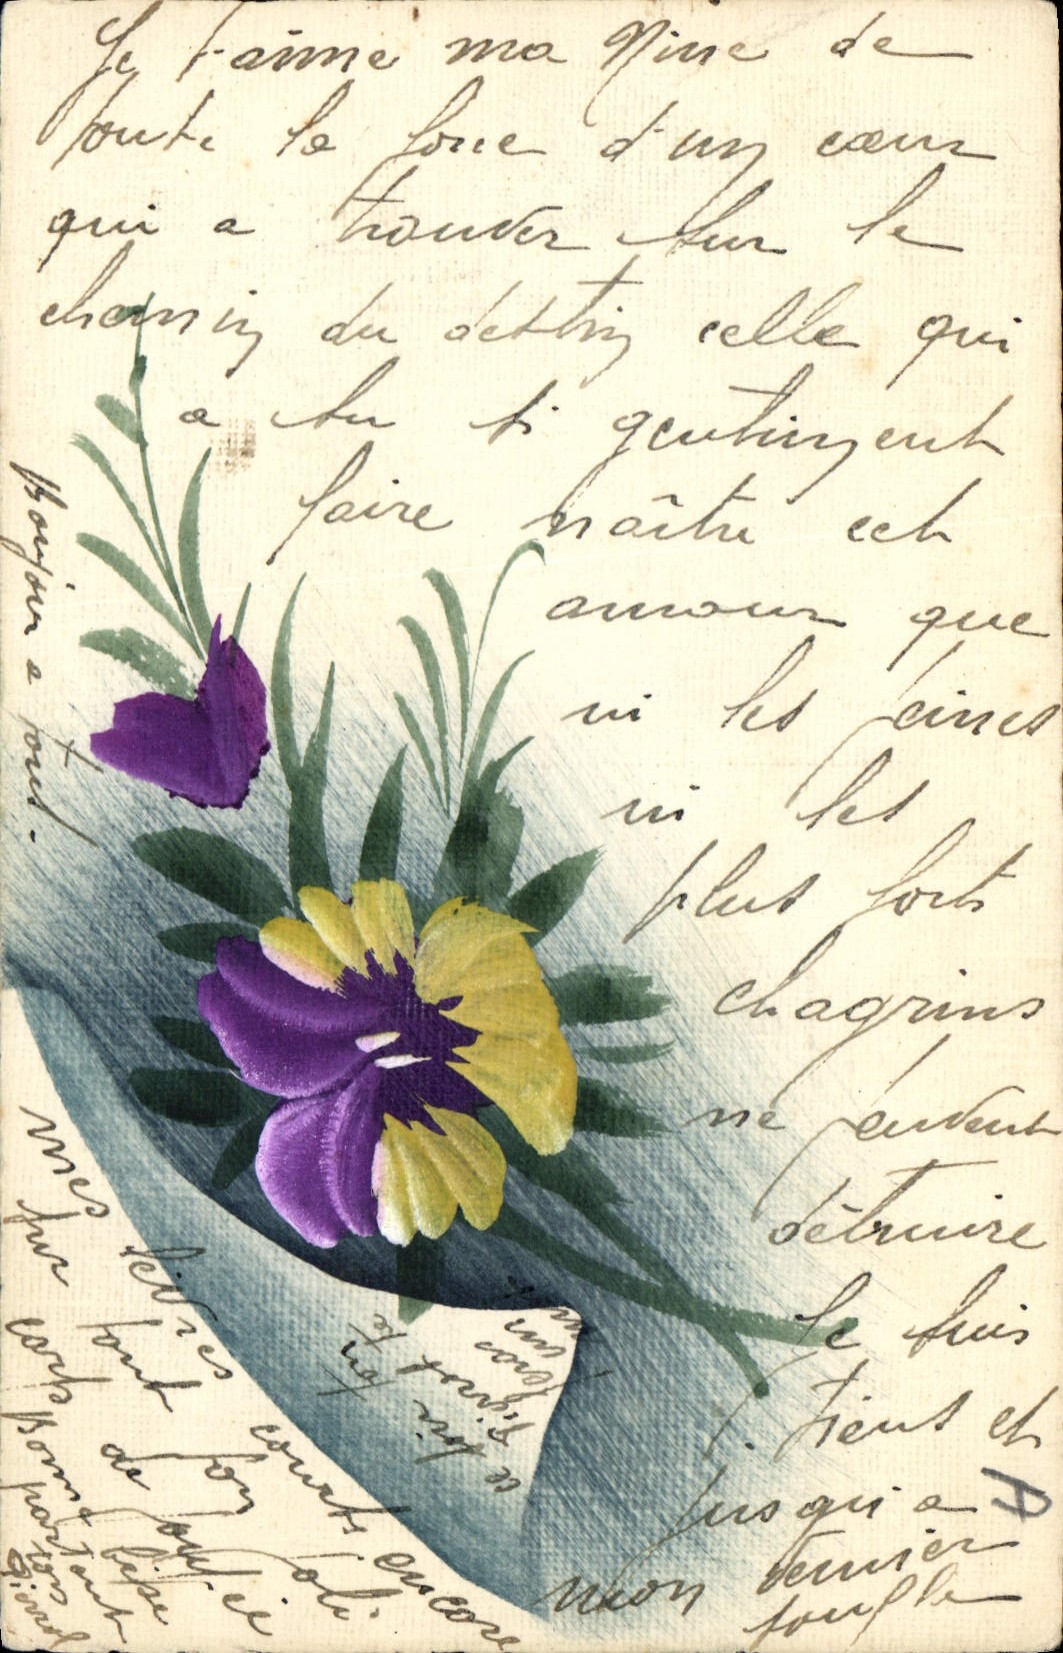 Je t'aime ma Nine de
toute la force d'un cœur
qui a trouver sur le
chemin du destin celle qui
a su si gentiment
faire naître cet
amour que
ni les peines
ni les
plus forts
chagrins
ne peuvent
détruire
Je suis
tiens et
jusqu'a
mon dernier
souffle
Bonjour a tous.
mes lèvres courts encore
sur ton joli
corps
Bonne bise
partout
ton
ce soir ton